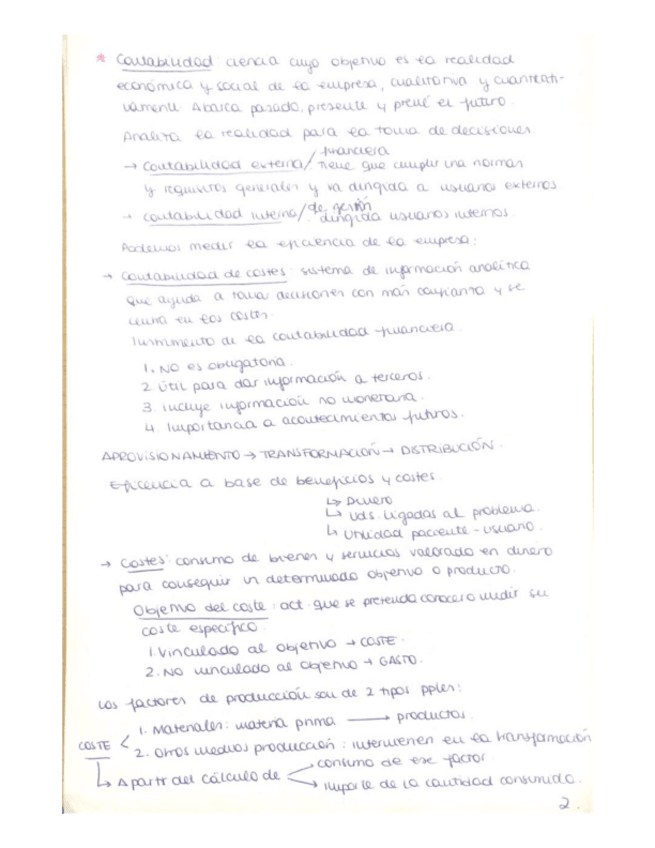 * Contabilidad: ciencia cuyo objetivo es la realidad
económica y social de la empresa, cualitativa y cuantitati-
vamente. Abarca pasado, presente y prevé el futuro.
Analiza la realidad para la toma de decisiones
→ Contabilidad externa/financiera tiene que cumplir una normas
y requisitos generales y va dirigida a usuarios externos.
→ contabilidad interna/de gestión dirigida usuarios internos.
Podemos medir la eficiencia de la empresa:
→ Contabilidad de costes: sistema de información analítica
que ayuda a tomar decisiones con más confianza y se
centra en los costes.
Instrumento de la contabilidad financiera.
1. NO es obligatoria.
2. Útil para dar información a terceros.
3. Incluye información no monetaria.
4. Importancia a acontecimientos futuros.
APROVISIONAMIENTO → TRANSFORMACIÓN → DISTRIBUCIÓN.
Eficencia a base de beneficios y costes.
↳ Dinero
↳ Uds. ligadas al problema.
↳ Utilidad paciente - usuario.
→ Costes: consumo de bienes y servicios valorado en dinero
para conseguir un determinado objetivo o producto.
Objetivo del coste: act. que se pretenda conocer o medir su
coste específico.
1. Vinculado al objetivo → COSTE.
2. NO vinculado al objetivo → GASTO.
Los factores de producción son de 2 tipos pples:
1. Materiales: materia prima → productos.
COSTE < 2. Otros medios producción: intervienen en la transformación
↳ A partir del cálculo de
→ consumo de ese factor.
→ importe de la cantidad consumida.
2.